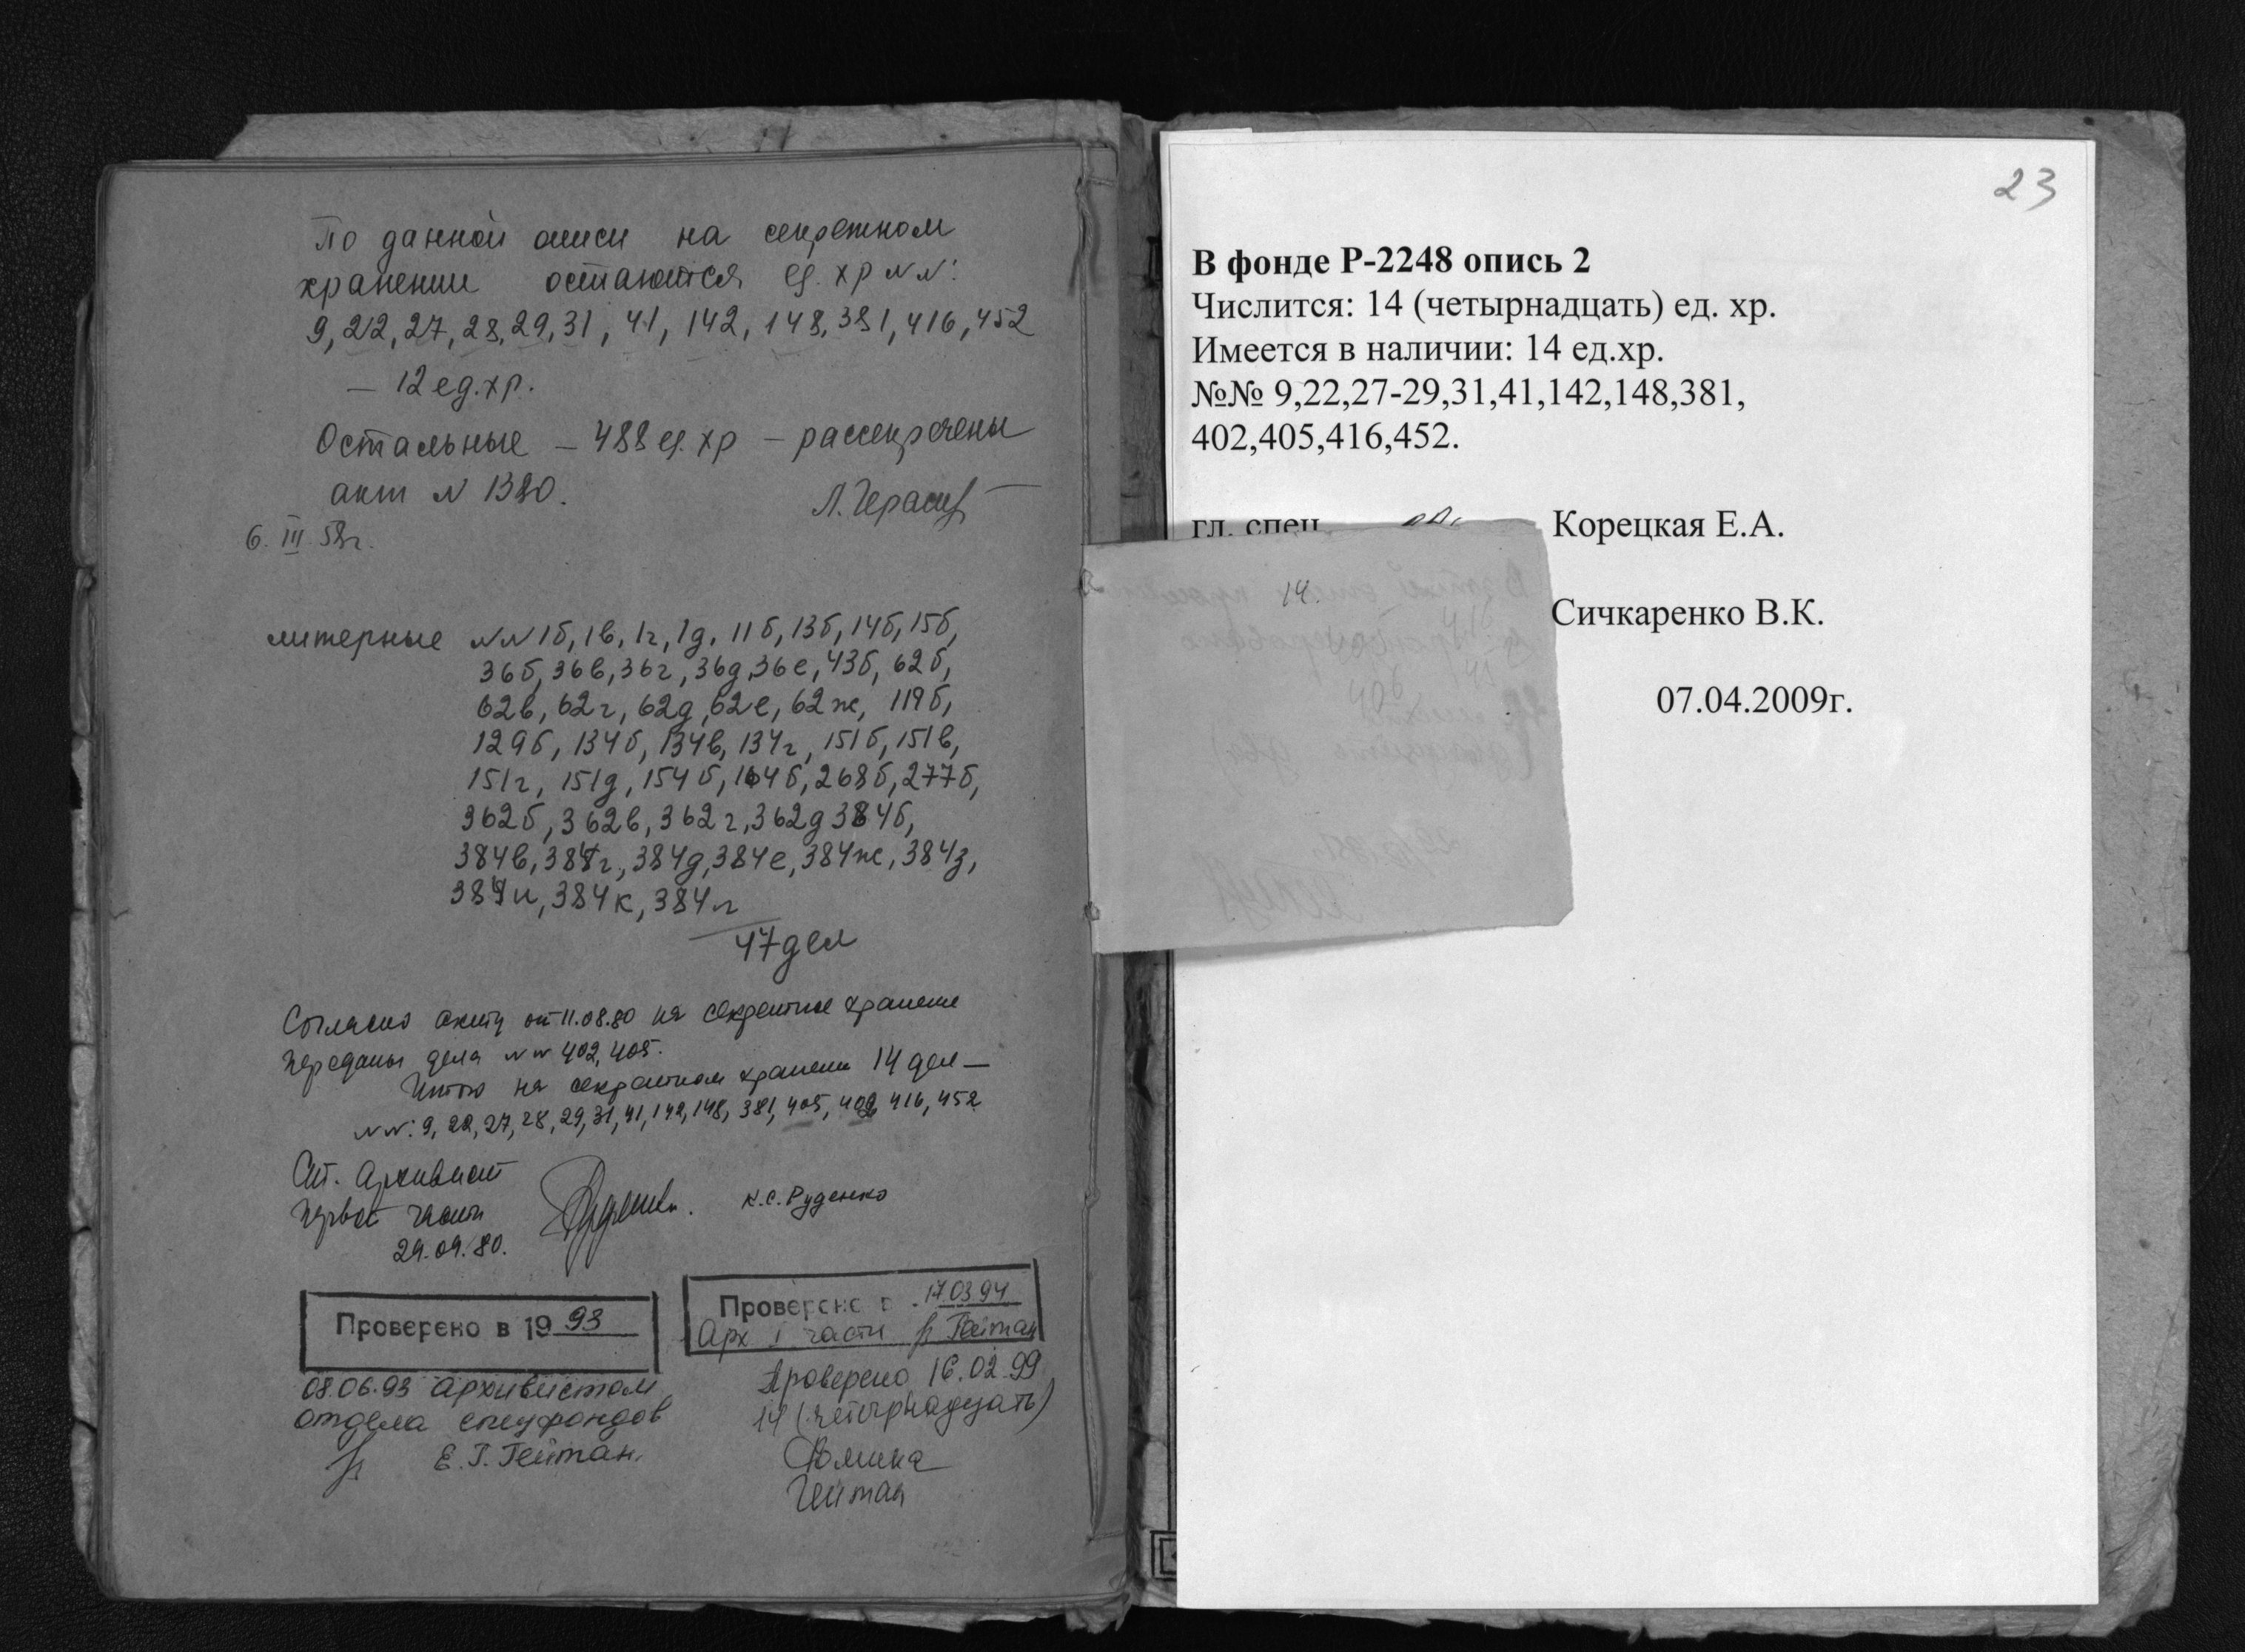 По данной описи на секретном
хранении остаются ед. хр NN:
9, 22, 27, 28, 29, 31, 41, 142, 148, 381, 416, 452
— 12 ед. хр.
Остальные — 488 ед. хр — рассекречены
акт N 1380.
6. III. 58г.
литерные NN 1б, 1в, 1г, 1д, 11б, 13б, 14б, 15б,
36б, 36в, 36г, 36д, 36е, 43б, 62б,
62в, 62г, 62д, 62е, 62ж, 119б,
129б, 134б, 134в, 134г, 151б, 151в,
151г, 151д, 154б, 164б, 268б, 277б,
362б, 362в, 362г, 362д 384б,
384в, 384г, 384д, 384е, 384ж, 384з,
384и, 384к, 384л
47 дел
Согласно акту от 11.08.80 на секретное хранение
переданы дела NN 402, 405.
Итого на секретном хранении 14 дел —
NN: 9, 22, 27, 28, 29, 31, 41, 142, 148, 381, 405, 402, 416, 452
Ст. архивист
первой части К.С. Руденко
29.09.80.
Проверено в 1993
08.06.93 архивистом
отдела спецфондов
Е. Г. Гейтан.
Проверено в 17.03.94
Арх I части Гейтан
Проверено 16.02.99
14 (четырнадцать)
Гейтан
23
В фонде Р-2248 опись 2
Числится: 14 (четырнадцать) ед. хр.
Имеется в наличии: 14 ед.хр.
№№ 9,22,27-29,31,41,142,148,381,
402,405,416,452.
гл. спец. Корецкая Е.А.
14.
Сичкаренко В.К.
07.04.2009г.